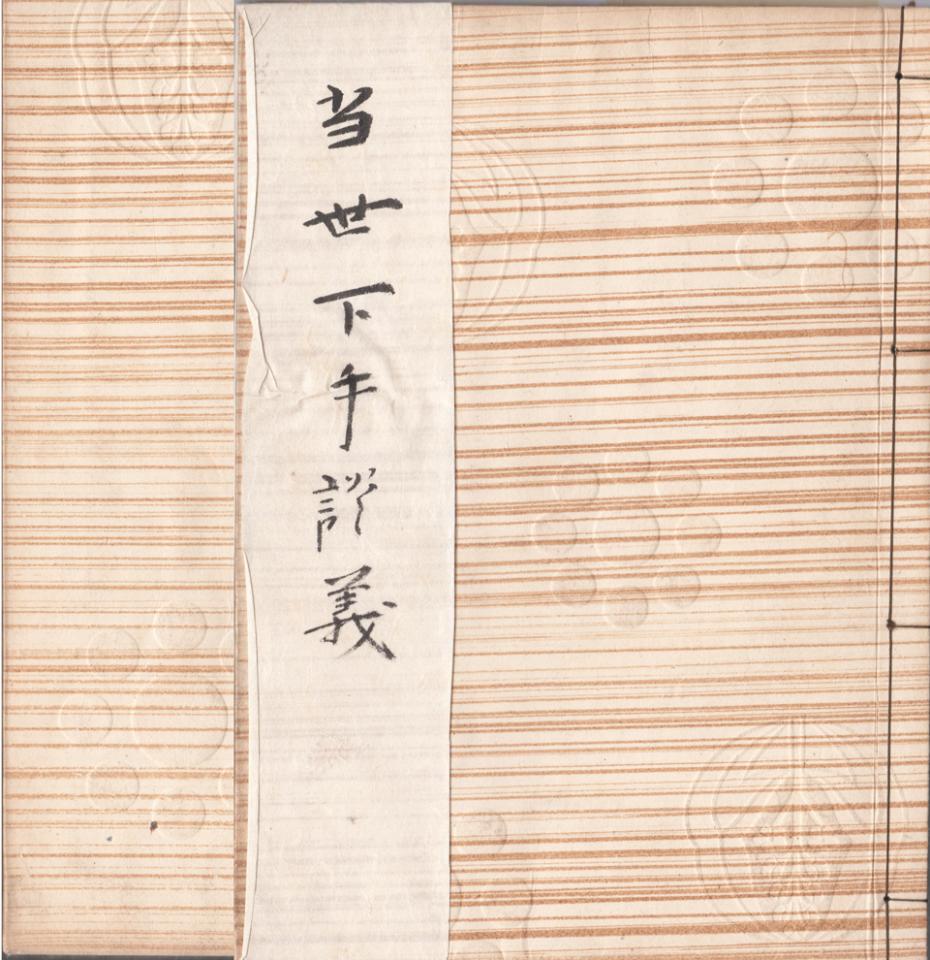 当世下手談義